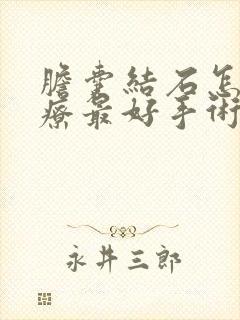 膽囊結石怎
療最好手術
永井三郎